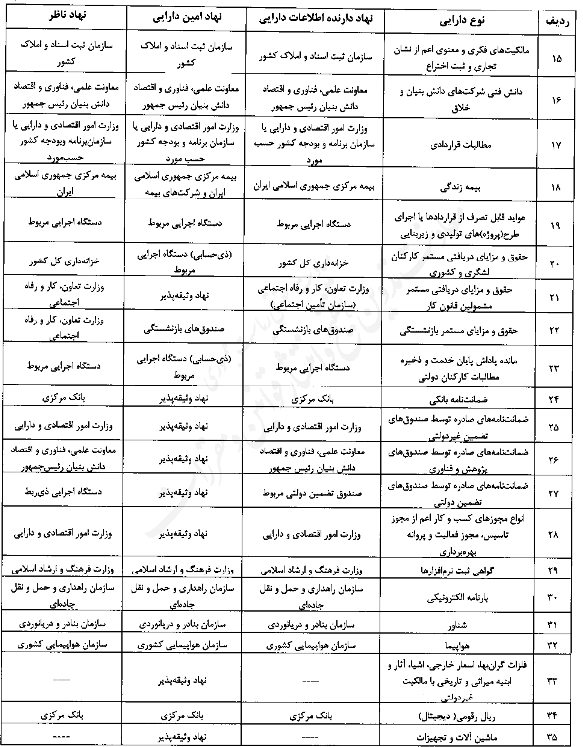 ردیف نوع دارایی نهاد دارنده اطلاعات دارایی نهاد امین دارایی نهاد ناظر
۱۵ مالکیت‌های فکری و معنوی اعم از نشان تجاری و ثبت اختراع سازمان ثبت اسناد و املاک کشور سازمان ثبت اسناد و املاک کشور سازمان ثبت اسناد و املاک کشور
۱۶ دانش فنی شرکت‌های دانش بنیان و خلاق معاونت علمی، فناوری و اقتصاد دانش بنیان رئیس جمهور معاونت علمی، فناوری و اقتصاد دانش بنیان رئیس جمهور معاونت علمی، فناوری و اقتصاد دانش بنیان رئیس جمهور
۱۷ مطالبات قراردادی وزارت امور اقتصادی و دارایی یا سازمان برنامه و بودجه کشور حسب مورد وزارت امور اقتصادی و دارایی یا سازمان برنامه و بودجه کشور حسب مورد وزارت امور اقتصادی و دارایی یا سازمان‌برنامه وبودجه کشور حسب‌مورد
۱۸ بیمه زندگی بیمه مرکزی جمهوری اسلامی ایران بیمه مرکزی جمهوری اسلامی ایران و شرکت‌های بیمه بیمه مرکزی جمهوری اسلامی ایران
۱۹ عواید قابل تصرف از قراردادها یا اجرای طرح(پروژه)های تولیدی و زیربنایی دستگاه اجرایی مربوط دستگاه اجرایی مربوط دستگاه اجرایی مربوط
۲۰ حقوق و مزایای دریافتی مستمر کارکنان لشگری و کشوری خزانه‌داری کل کشور (ذی‌حسابی) دستگاه اجرایی مربوط خزانه‌داری کل کشور
۲۱ حقوق و مزایای دریافتی مستمر مشمولین قانون کار وزارت تعاون، کار و رفاه اجتماعی (سازمان تأمین اجتماعی) نهاد وثیقه‌پذیر وزارت تعاون، کار و رفاه اجتماعی
۲۲ حقوق و مزایای مستمر بازنشستگی صندوق‌های بازنشستگی صندوق‌های بازنشستگی وزارت تعاون، کار و رفاه اجتماعی
۲۳ مانده پاداش پایان خدمت و ذخیره مطالبات کارکنان دولتی دستگاه اجرایی مربوط (ذی‌حسابی) دستگاه اجرایی مربوط دستگاه اجرایی مربوط
۲۴ ضمانت‌نامه بانکی بانک مرکزی نهاد وثیقه‌پذیر بانک مرکزی
۲۵ ضمانت‌نامه‌های صادره توسط صندوق‌های تضمین غیردولتی وزارت امور اقتصادی و دارایی نهاد وثیقه‌پذیر وزارت امور اقتصادی و دارایی
۲۶ ضمانت‌نامه‌های صادره توسط صندوق‌های پژوهش و فناوری معاونت علمی، فناوری و اقتصاد دانش بنیان رئیس جمهور نهاد وثیقه‌پذیر معاونت علمی، فناوری و اقتصاد دانش بنیان رئیس‌جمهور
۲۷ ضمانت‌نامه‌های صادره توسط صندوق‌های تضمین دولتی صندوق تضمین دولتی مربوط نهاد وثیقه‌پذیر دستگاه اجرایی ذی‌ربط
۲۸ انواع مجوزهای کسب و کار اعم از مجوز تاسیس، مجوز فعالیت و پروانه بهره‌برداری وزارت امور اقتصادی و دارایی نهاد وثیقه‌پذیر وزارت امور اقتصادی و دارایی
۲۹ گواهی ثبت نرم‌افزارها وزارت فرهنگ و ارشاد اسلامی وزارت فرهنگ و ارشاد اسلامی وزارت فرهنگ و ارشاد اسلامی
۳۰ بارنامه الکترونیکی سازمان راهداری و حمل و نقل جاده‌ای سازمان راهداری و حمل و نقل جاده‌ای سازمان راهداری و حمل و نقل جاده‌ای
۳۱ شناور سازمان بنادر و دریانوردی سازمان بنادر و دریانوردی سازمان بنادر و دریانوردی
۳۲ هواپیما سازمان هواپیمایی کشوری سازمان هواپیمایی کشوری سازمان هواپیمایی کشوری
۳۳ فلزات گران‌بها، اسعار خارجی، اشیا، آثار و ابنیه میراثی و تاریخی با مالکیت غیردولتی ---- نهاد وثیقه‌پذیر ----
۳۴ ریال رقومی( دیجیتال) بانک مرکزی بانک مرکزی بانک مرکزی
۳۵ ماشین آلات و تجهیزات ---- نهاد وثیقه‌پذیر ----